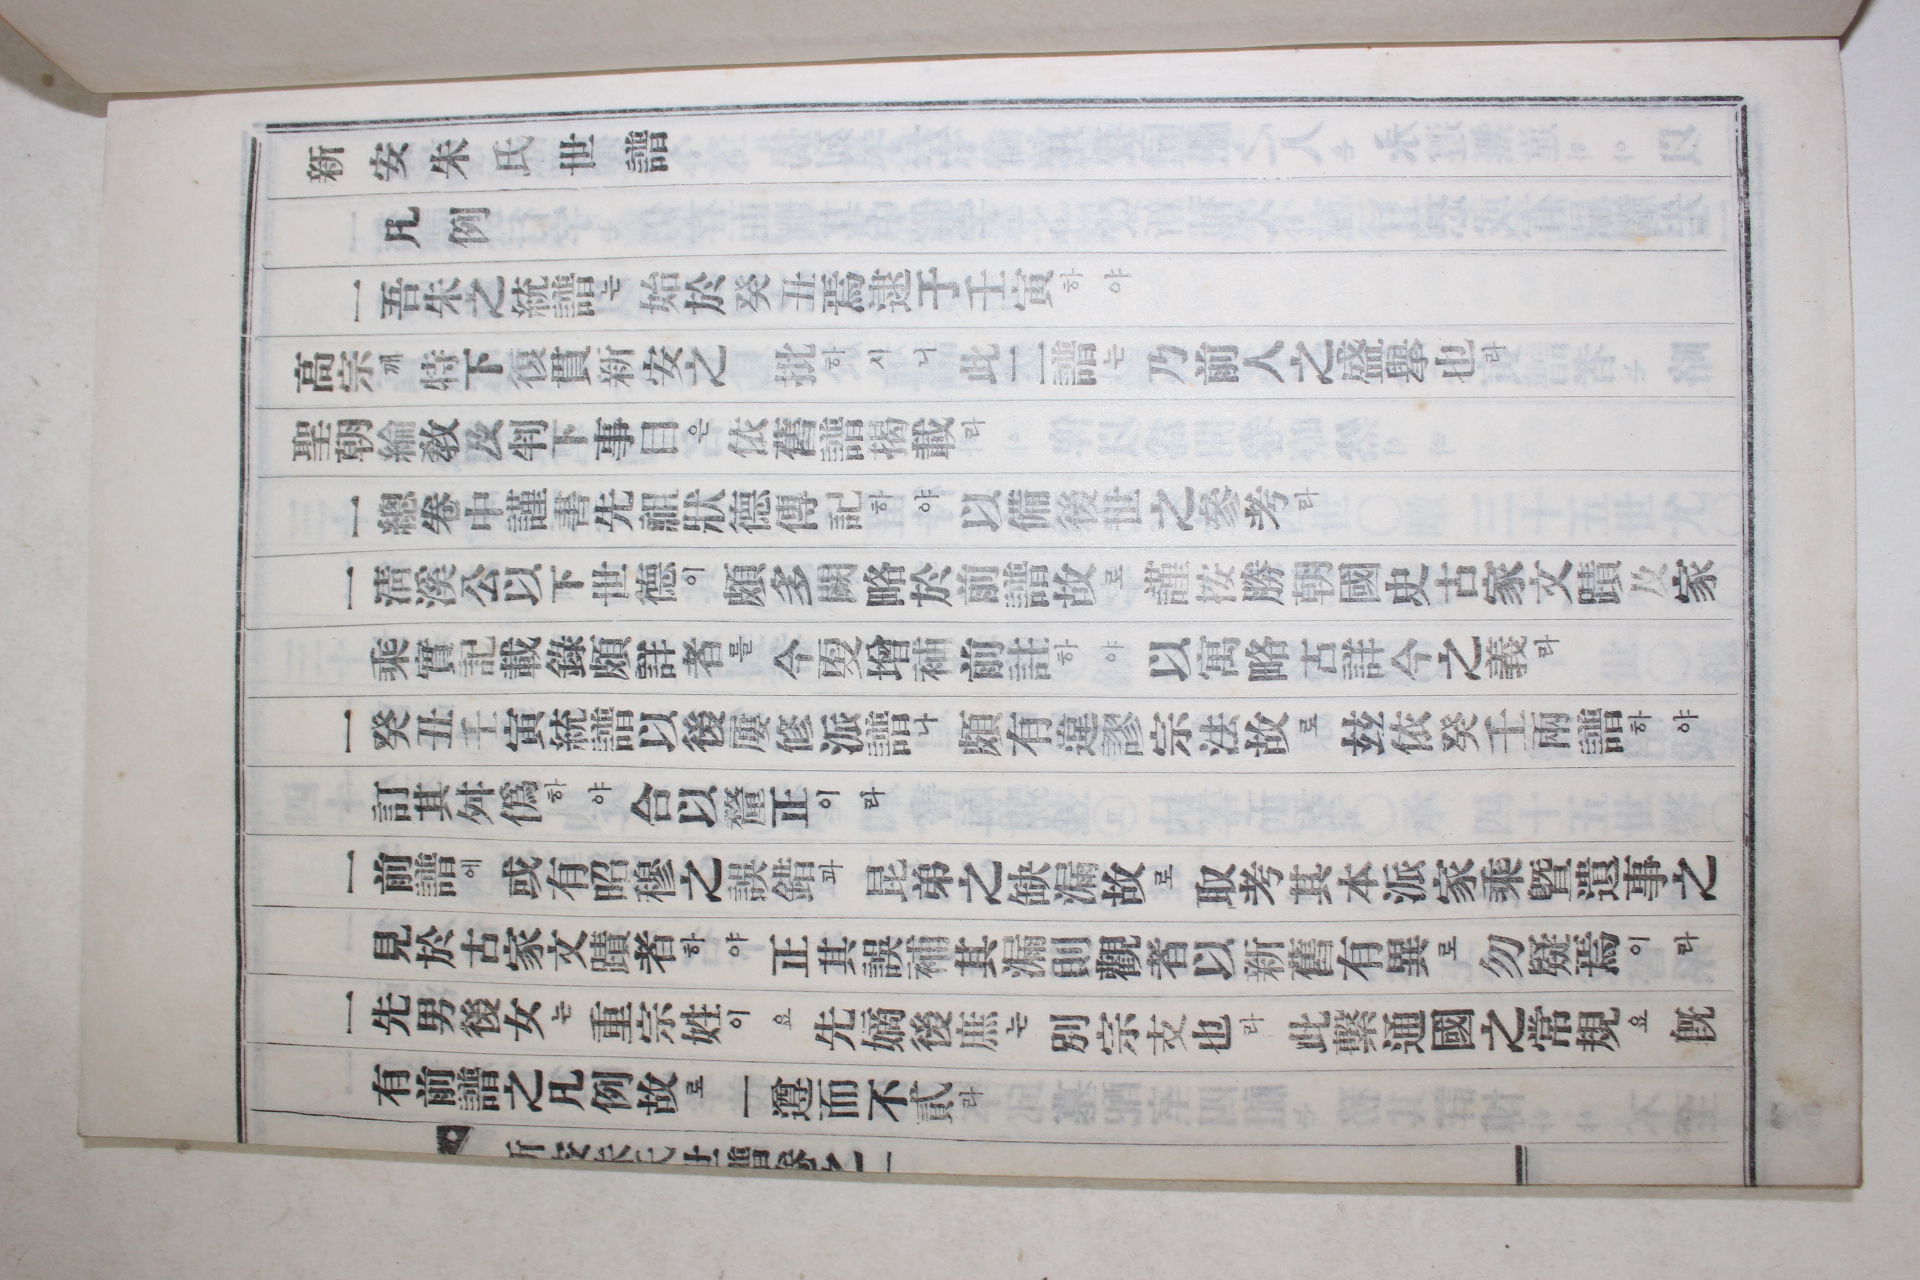 新安朱氏世譜
凡例
一吾朱之統譜는始於癸丑焉逮于壬寅하야
高宗께特下復貫新安之批하시니此二譜는乃前人之盛擧也라
聖朝綸敎及判下事目은依舊譜揭載라
一總卷中謹書先祖狀德傳記하야以備後世之參考라
一淸溪公以下世德이頗多闕略於前譜故로謹按勝朝國史古家文蹟及家
乘實記載錄頗詳者를今更增補前註하야以寓略古詳今之義라
一癸丑壬寅統譜以後屢修派譜나頗有違謬宗法故로玆依癸壬兩譜하야
訂其舛僞하야合以釐正이라
一前譜에或有昭穆之誤錯과昆弟之缺漏故로取考其本派家乘曁遺事之
見於古家文蹟者하야正其誤補其漏則觀者以新舊有異로勿疑焉이라
一先男後女는重宗姓이요先嫡後庶는別宗支也라此繫通國之常規요旣
有前譜之凡例故로一遵而不貳라